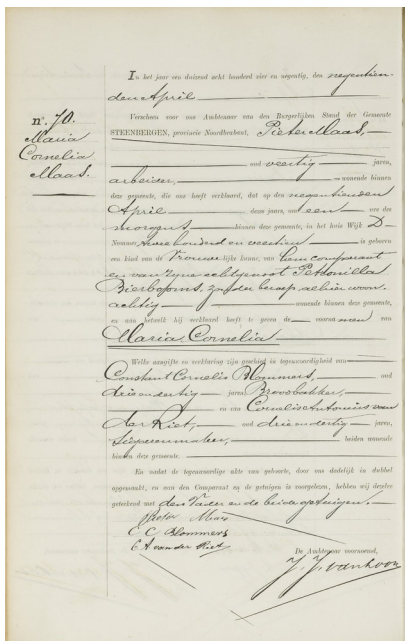 nº. 70.
Maria
Cornelia
Maas.
In het jaar een duizend acht honderd vier en negentig, den negentien-
den April
Verscheen voor ons Ambtenaar van den Burgerlijken Stand der Gemeente
STEENBERGEN, provincie Noordbrabant, Pieter Maas,
oud veertig jaren,
arbeider, wonende binnen
deze gemeente, die ons heeft verklaard, dat op den negentienden
April dezes jaars, ten een ure des
morgens binnen deze gemeente, in het huis Wijk D
Nummer twee honderd en veertien is geboren
een kind van de Vrouwelijke kunne, van hem comparant
en van zijne echtgenoot Petronilla
Bierbooms, zonder beroep, alhier woon-
achtig wonende binnen deze gemeente,
en aan hetwelk hij verklaard heeft te geven de voornamen van
Maria Cornelia
Welke aangifte en verklaring zijn geschied in tegenwoordigheid van
Constant Cornelis Blommers, oud
drieendertig jaren Broodbakker,
en van Cornelis Antonius van
der Riet, oud drieendertig jaren,
beiden wonende
binnen deze gemeente.
En nadat de tegenwoordige akte van geboorte, door ons dadelijk in dubbel
opgemaakt, en aan den Comparant en de getuigen is voorgelezen, hebben wij dezelve
geteekend met den Vader en de beide getuigen.
Pieter Maas
C C Blommers
C A van der Riet
De Ambtenaar voornoemd,
J. J. van Loon